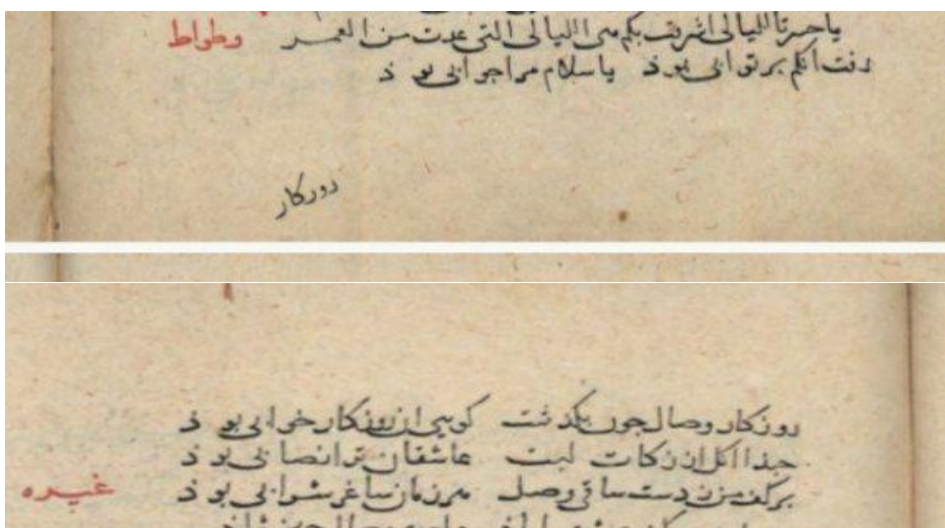 یا حسرتا للیالی اشرقت بکم من اللیالی التی عدت من العمر وطواط
رفت آنکم برتو ابی بوذ یا سلام مرا جوابی بوذ
روزکار
روزکار وصال چون بکذشت کوییی ان روزکار خوابی بوذ
حبذا انک از زکات لبت عاشقان ترا نصابی بوذ
برکف من زدست ساقی وصل هر زمان ساغر شرابی بوذ غیره